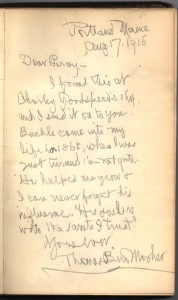 Portland Maine
Aug 7, 1916
Dear
I found this at
Charley Goodspeed's shop
and I send it on to you.
Buckle came into my
life in 1868, when I was
just turned 16 - not quite.
He helped me grow &
I can never forget his
influence. His book is
worth the
Yours ever
Thomas Bird Mosher